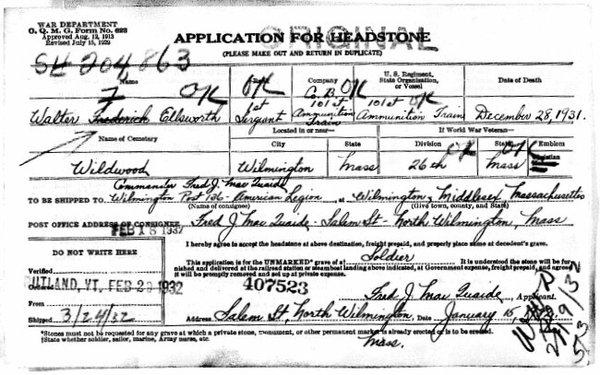 WAR DEPARTMENT
O. Q. M. G. Form No. 623
Approved Aug. 12, 1913
Revised July 15, 1929
ORIGINAL
APPLICATION FOR HEADSTONE
(PLEASE MAKE OUT AND RETURN IN DUPLICATE)
204863
Name
Rank
Company
U. S. Regiment, State Organization, or Vessel
Date of Death
F OK OK Co. B OK OK
Walter Frederick Ellsworth
1st Sergent
101st Ammunition Train
101st Ammunition Train
December 28, 1931.
Name of Cemetery
Located in or near—
If World War Veteran—
City
State
Division
State
Emblem
Wildwood
Wilmington
Mass
26th OK
Mass OK
Christian
Commander Fred J. MacQuaide
TO BE SHIPPED TO Wilmington Post 136 - American Legion at Wilmington, Middlesex, Massachusetts
(Name of consignee)
(Give town, county, and State)
POST OFFICE ADDRESS OF CONSIGNEE Fred J. MacQuaide - Salem St - North Wilmington, Mass
FEB 18 1932
I hereby agree to accept the headstone at above destination, freight prepaid, and properly place same at decedent's grave.
DO NOT WRITE HERE
This application is for the UNMARKED* grave of a Soldier It is understood the stone will be furnished and delivered at the railroad station or steamboat landing above indicated, at Government expense, freight prepaid, and agreed it will be promptly removed and set up at private expense.
Verified
RUTLAND, VT, FEB 29 1932
From
407523
Fred J. MacQuaide, Applicant.
Shipped 3/24/32
Address, Salem St, North Wilmington, Date January 15,
Mass.
2/19/32
573
*Stones must not be requested for any grave at which a private stone, monument, or other permanent marker is already erected or is to be erected.
State whether soldier, sailor, marine, Army nurse, etc.